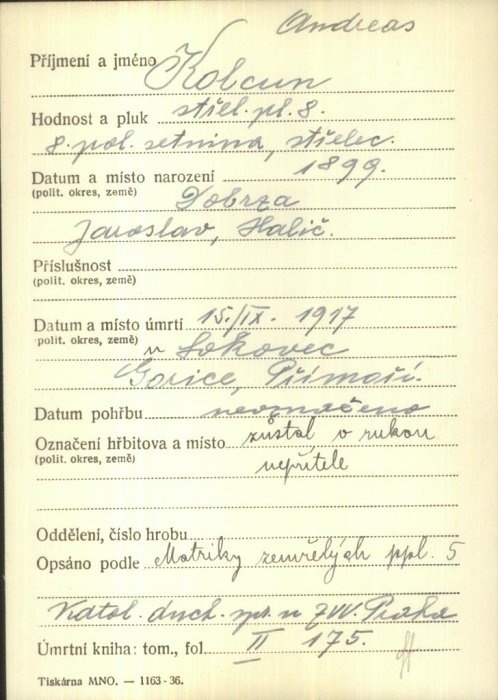 Andreas
Příjmení a jméno Kolcun
Hodnost a pluk střel. pl. 8.
8. pol. setnina, střelec.
Datum a místo narození 1899.
(polit. okres, země) Dobrza
Jaroslav, Halič.
Příslušnost
(polit. okres, země)
Datum a místo úmrtí 15./IX. 1917
(polit. okres, země) u Lokovec
Gorice, Přímoří.
Datum pohřbu neoznačeno
Označení hřbitova a místo zůstal v rukou
(polit. okres, země) nepřítele
Oddělení, číslo hrobu
Opsáno podle Matriky zemřelých ppl. 5
Katol. duch. spr. u ZVV. Praha
Úmrtní kniha: tom., fol. II 175.
Tiskárna MNO. — 1163-36.